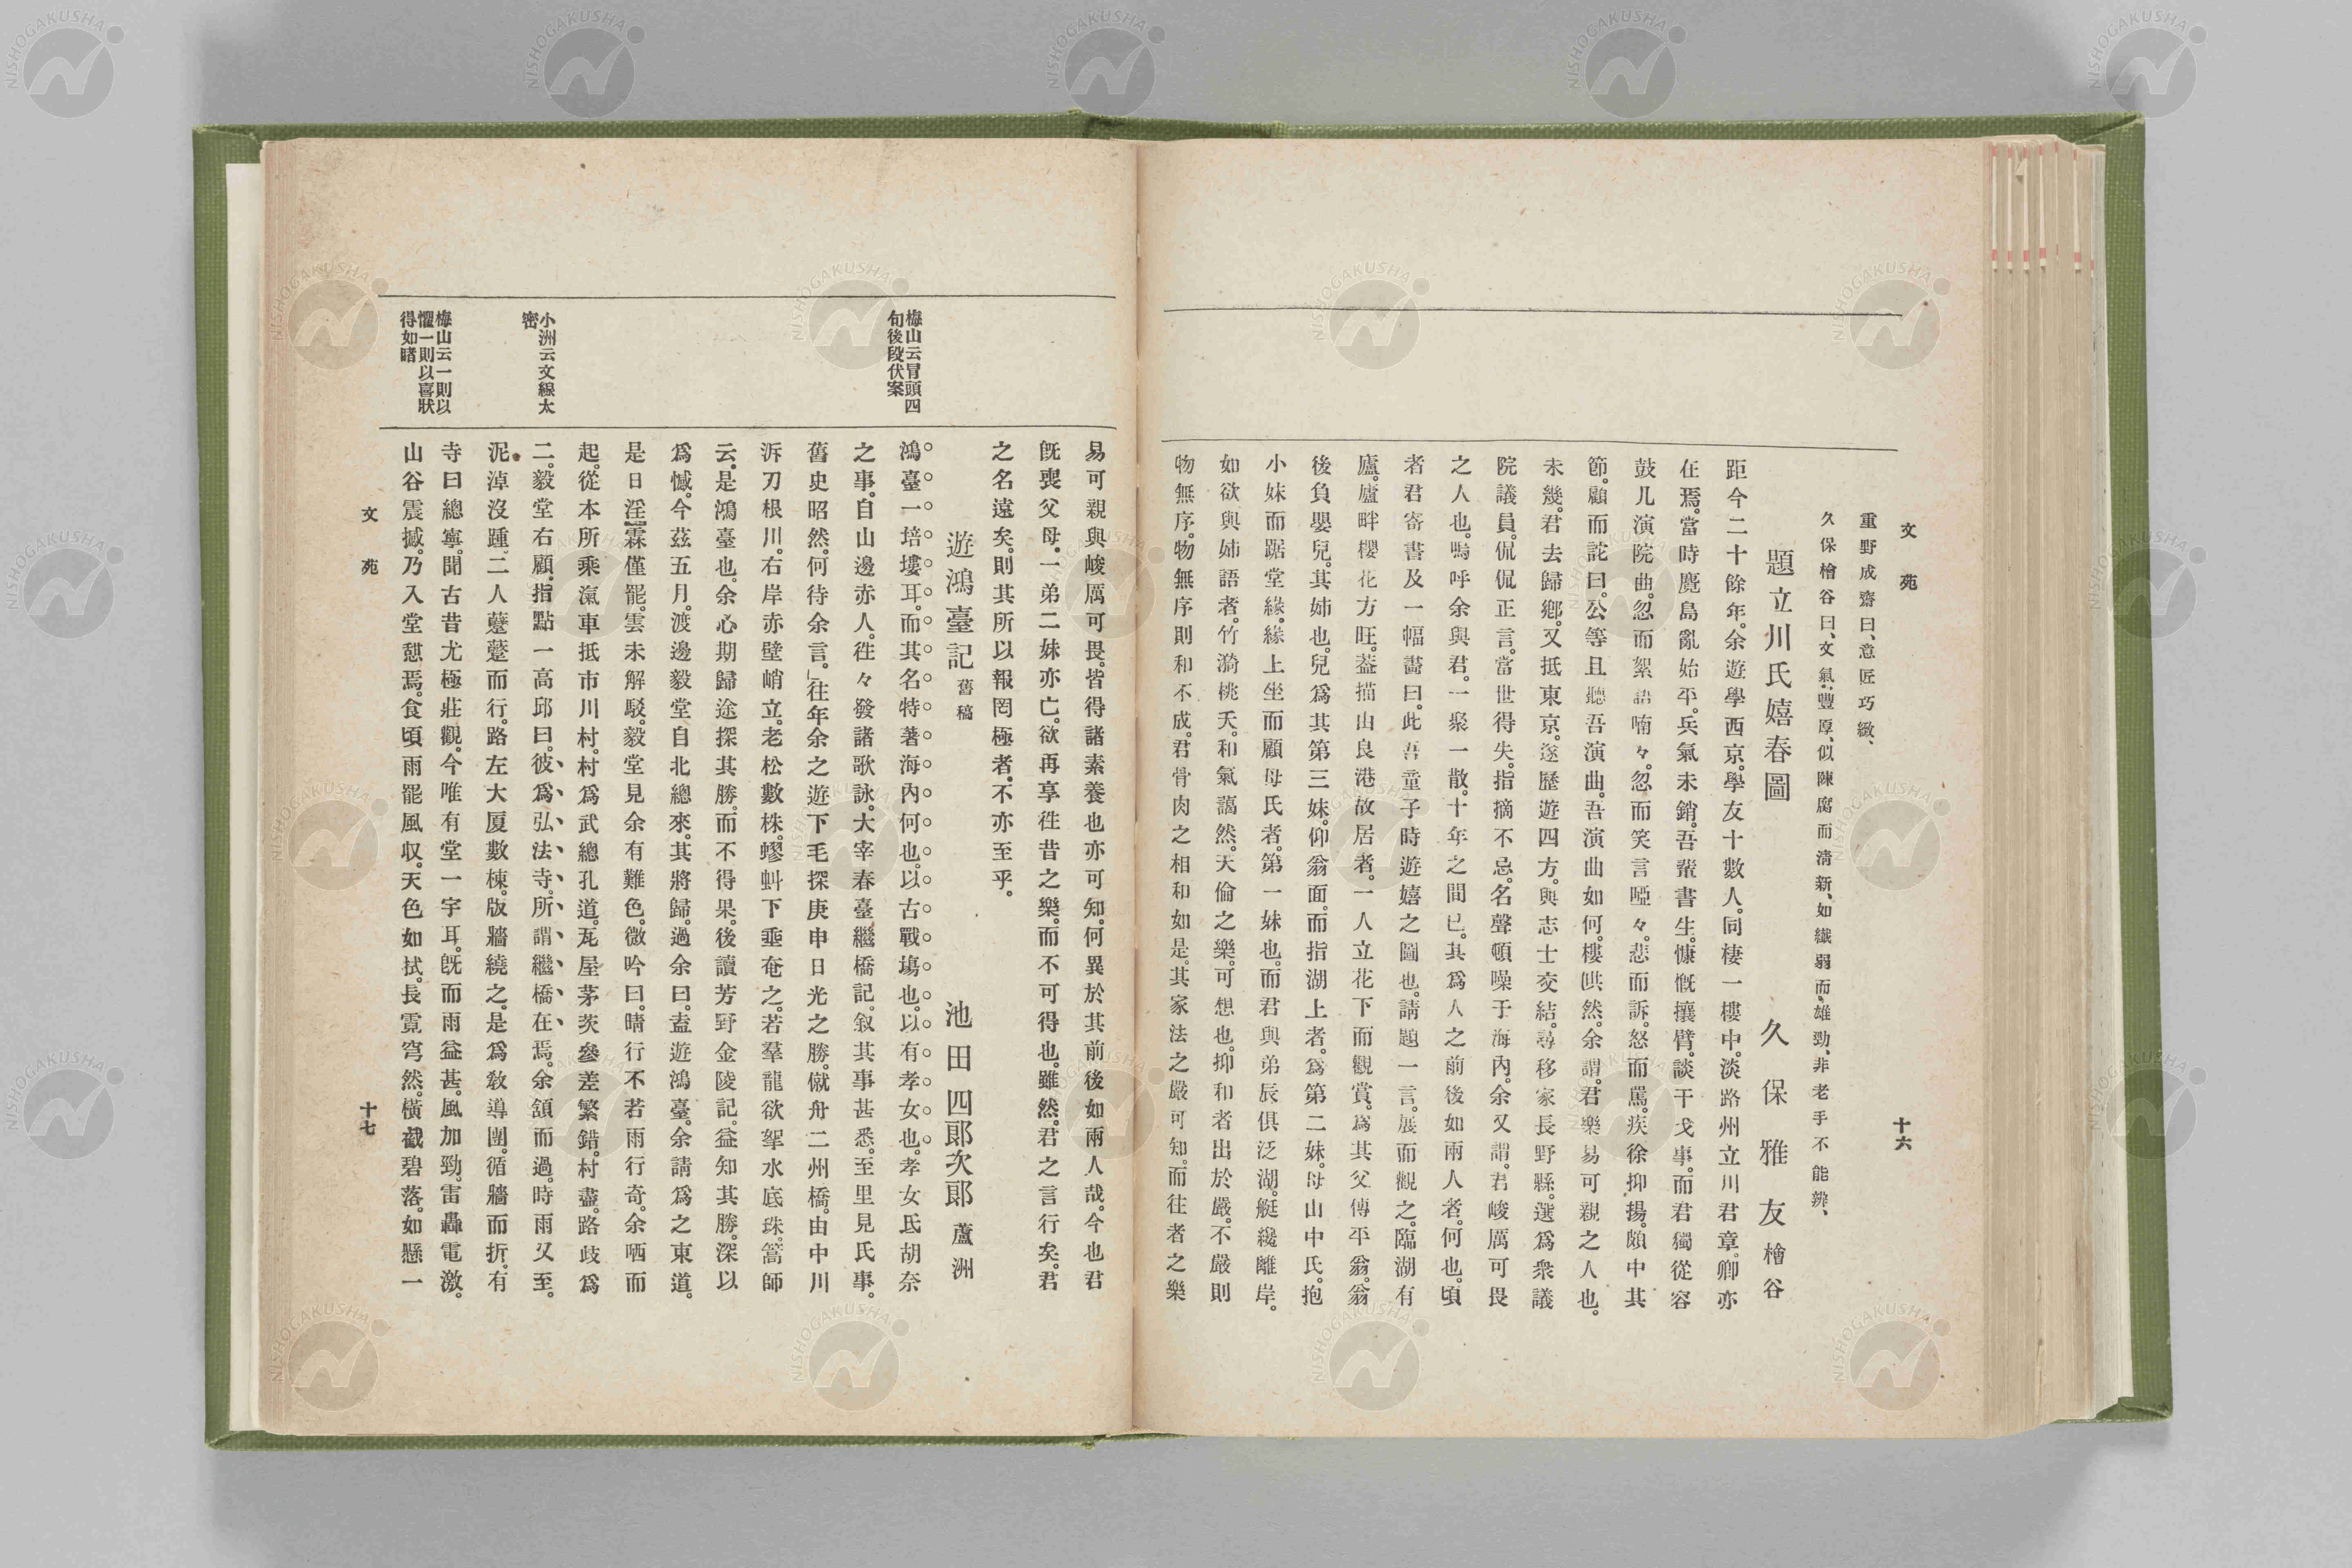 文苑
十六
重野成齋曰、意匠巧緻、
久保檜谷曰、文氣豐厚、似陳腐而淸新、如纎弱而雄勁、非老手不能辨、
題立川氏嬉春圖
久保雅友檜谷
距今二十餘年。余遊學西京。學友十數人。同棲一樓中。淡路州立川君章卿亦
在焉。當時麑島亂始平。兵氣未銷。吾輩書生。慷慨攘臂。談干戈事。而君獨從容
鼓儿演院曲。忽而絮語喃々。忽而笑言啞々。悲而訴。怒而罵。疾徐抑揚。頗中其
節。顧而詫曰。公等且聽吾演曲。吾演曲如何。樓鬨然。余謂。君樂易可親之人也。
未幾。君去歸鄕。又抵東京。遂歷遊四方。與志士交結。尋移家長野縣。選爲衆議
院議員。侃侃正言。當世得失。指摘不忌。名聲頓噪于海內。余又謂。君峻厲可畏
之人也。嗚呼余與君。一聚一散。十年之間已。其爲人之前後如兩人者。何也。頃
者君寄書及一幅畵曰。此吾童子時遊嬉之圖也。請題一言。展而觀之。臨湖有
廬。廬畔櫻花方旺。葢描由良港故居者。一人立花下而觀賞。爲其父傳平翁。翁
後負嬰兒。其姊也。兒爲其第三妹。仰翁面。而指湖上者。爲第二妹。母山中氏。抱
小妹而踞堂緣。緣上坐而顧母氏者。第一妹也。而君與弟辰俱泛湖。艇纔離岸。
如欲與姊語者。竹漪桃夭。和氣藹然。天倫之樂。可想也。抑和者出於嚴。不嚴則
物無序。物無序則和不成。君骨肉之相和如是。其家法之嚴可知。而往者之樂
易可親與峻厲可畏。皆得諸素養也亦可知。何異於其前後如兩人哉。今也君
旣喪父母。一弟二妹亦亡。欲再享徃昔之樂。而不可得也。雖然。君之言行矣。君
之名遠矣。則其所以報罔極者。不亦至乎。
遊鴻臺記 舊稿
池田四郞次郞蘆洲
梅山云冒頭四
句後段伏案
鴻臺一培塿耳。而其名特著海內何也。以古戰塲也。以有孝女也。孝女氏胡奈
之事。自山邊赤人。徃々發諸歌詠。大宰春臺繼橋記。叙其事甚悉。至里見氏事。
舊史昭然。何待余言。」往年余之遊下毛探庚申日光之勝。僦舟二州橋。由中川
泝刀根川。右岸赤壁峭立。老松數株。蟉虯下垂奄之。若羣龍欲拏水底珠。篙師
云。是鴻臺也。余心期歸途探其勝。而不得果。後讀芳野金陵記。益知其勝。深以
爲憾。今茲五月。渡邊毅堂自北總來。其將歸。過余曰。盍遊鴻臺。余請爲之東道。
是日淫霖僅罷。雲未解駁。毅堂見余有難色。微吟曰。晴行不若雨行奇。余哂而
起。從本所乘滊車抵市川村。村爲武總孔道。瓦屋茅茨參差繁錯。村盡。路歧爲
小洲云文線太
密
二。毅堂右顧。指點一高邱曰。彼爲弘法寺。所謂繼橋在焉。余頷而過。時雨又至。
泥淖沒踵。二人躄躄而行。路左大厦數棟。版牆繞之。是爲敎導團。循牆而折。有
梅山云一則以
懼一則以喜狀
得如睹
寺曰總寧。聞古昔尤極莊觀。今唯有堂一宇耳。旣而雨益甚。風加勁。雷轟電激。
山谷震撼。乃入堂憩焉。食頃雨罷風収。天色如拭。長霓穹然。橫截碧落。如懸一
文苑
十七